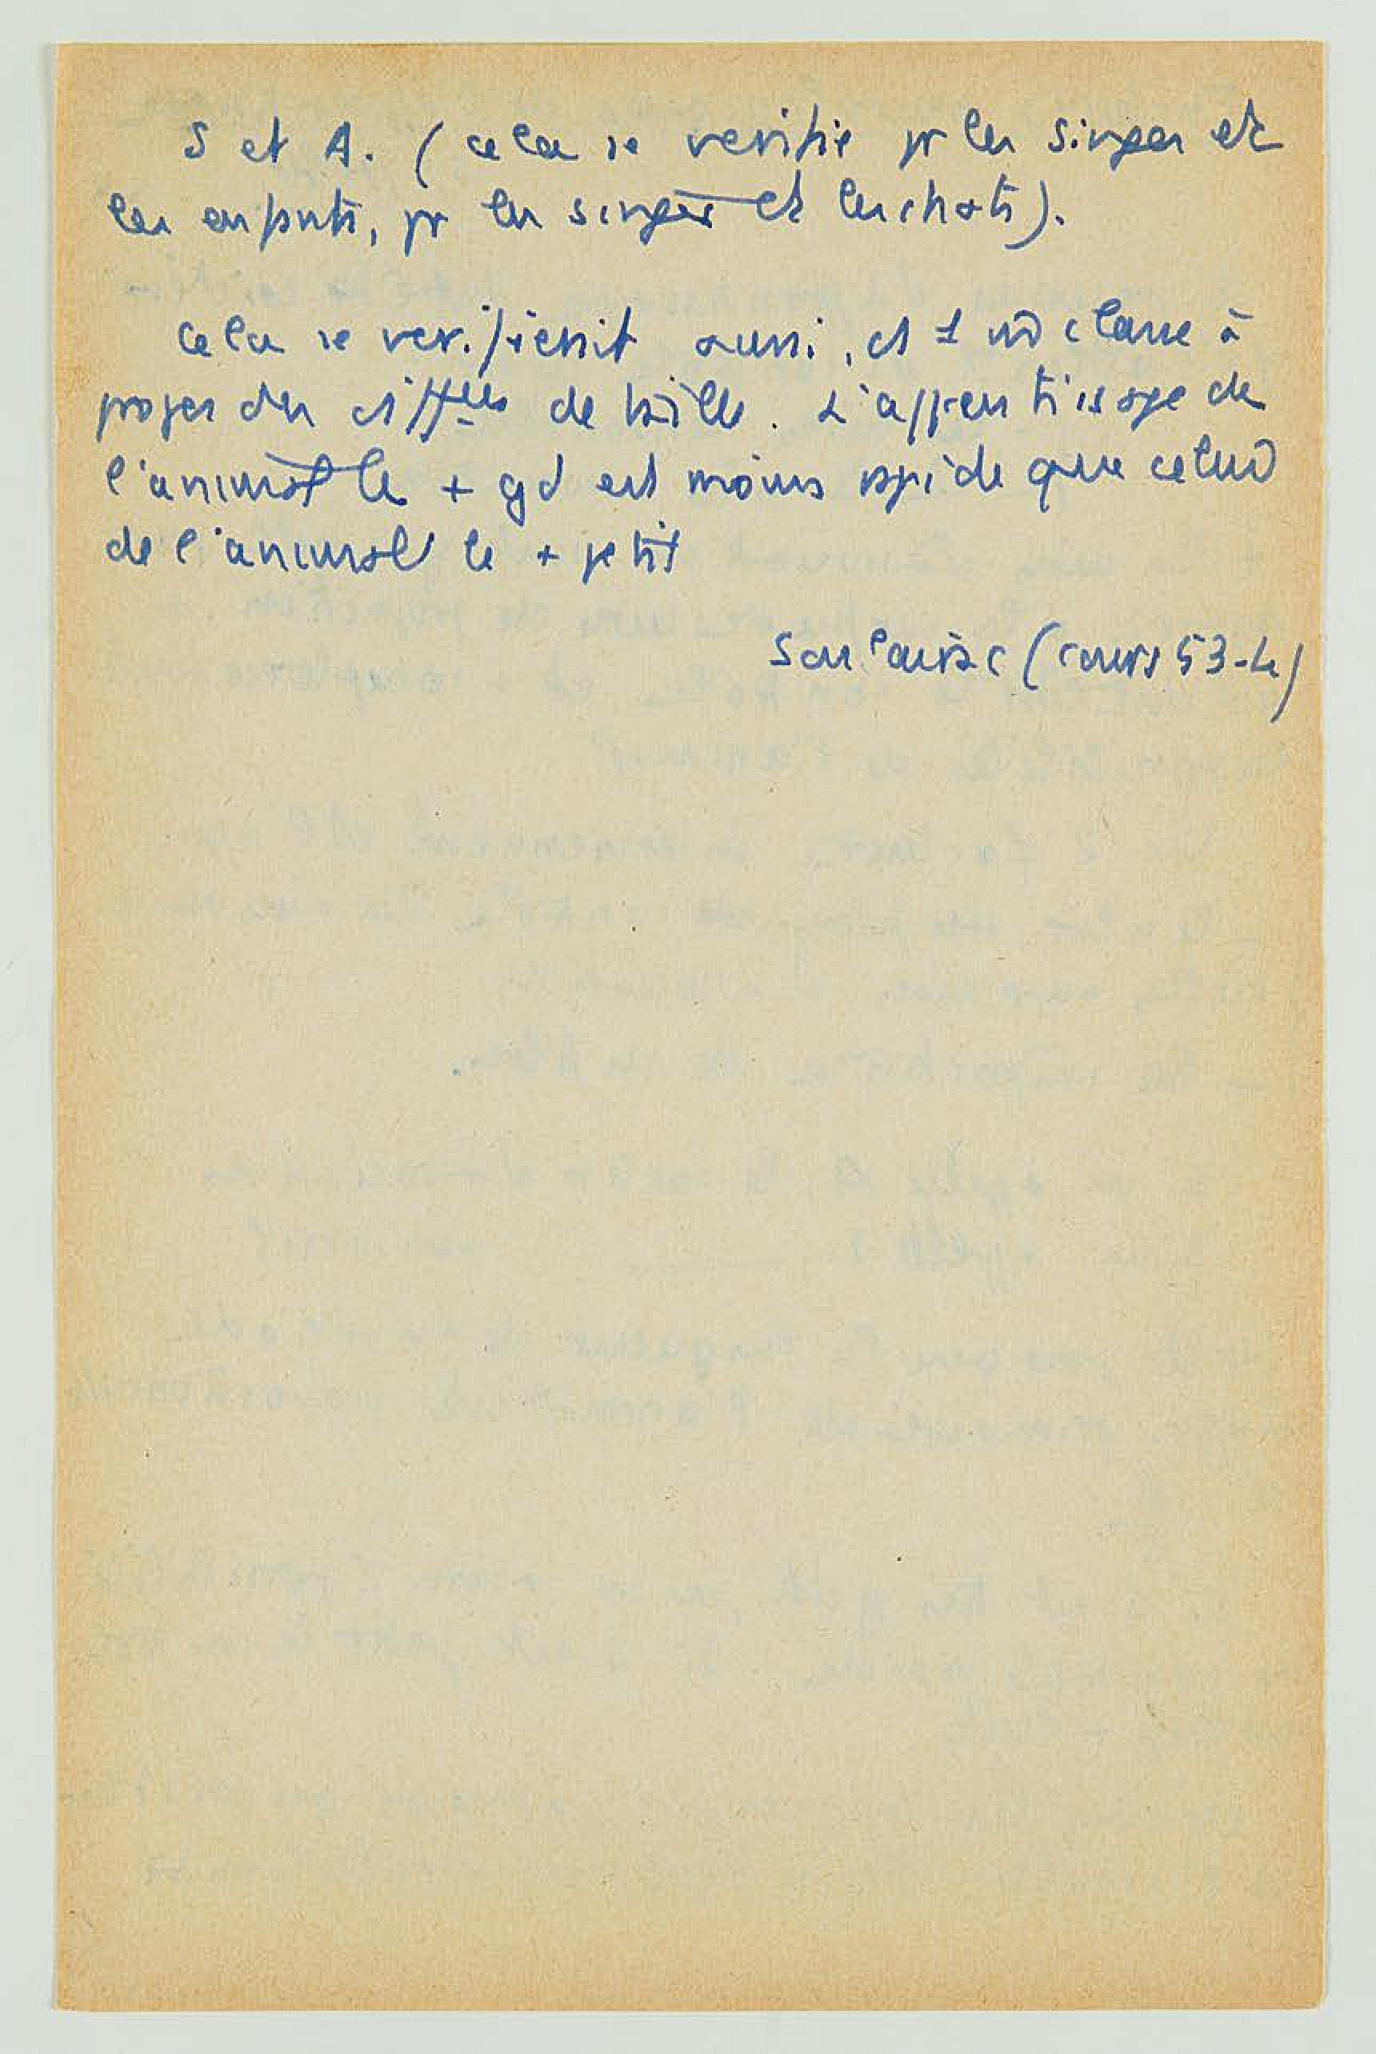 S et A. (cela se verifie pr les singes et
les enfants, pr les singes et les chats).
Cela se verifierait aussi, ds 1 m̂ classe à
propos des diffces de taille. L'apprentissage de
l'animal le + gd est moins rapide que celui
de l'animal le + petit
Soulairac (cours 53-4)